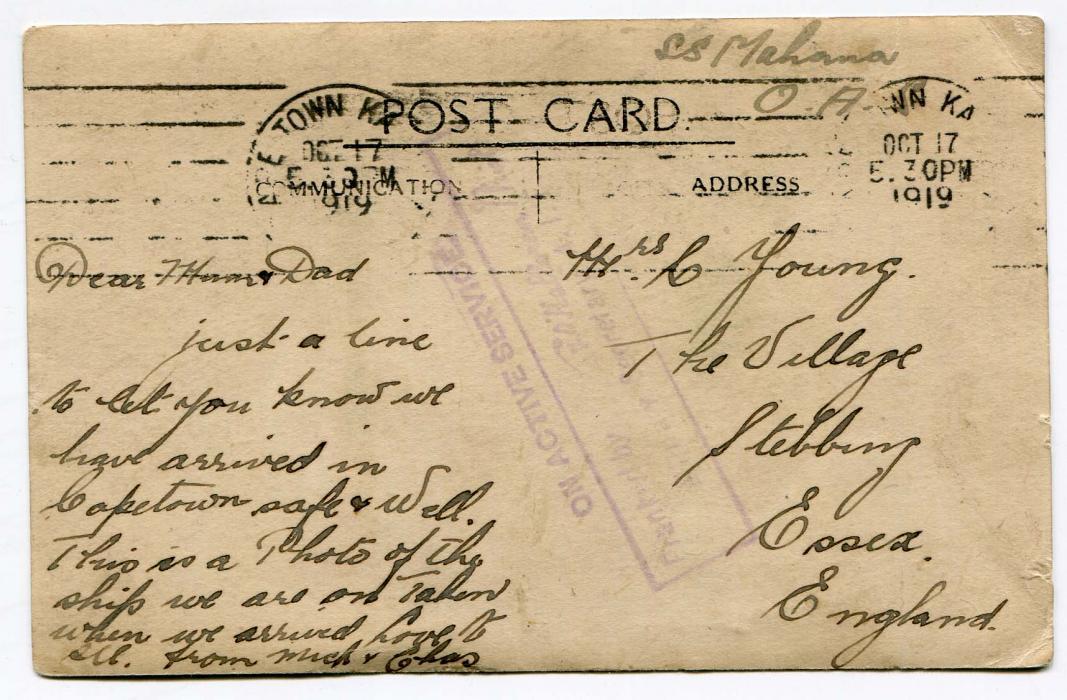 SS Mahana
O. A.
POST CARD.
TOWN KA
OCT 17
PM
1919
WN KA
OCT 17
5.30PM
1919
COMMUNICATION
ADDRESS
ON ACTIVE SERVICE.
Dear Mum & Dad
just a line
to let you know we
have arrived in
Capetown safe & Well.
This is a Photo of the
ship we are on Taken
when we arrived, Love to
all. from Mick & Chas
Mrs. C Young.
The Village
Stebbing
Essex.
England.